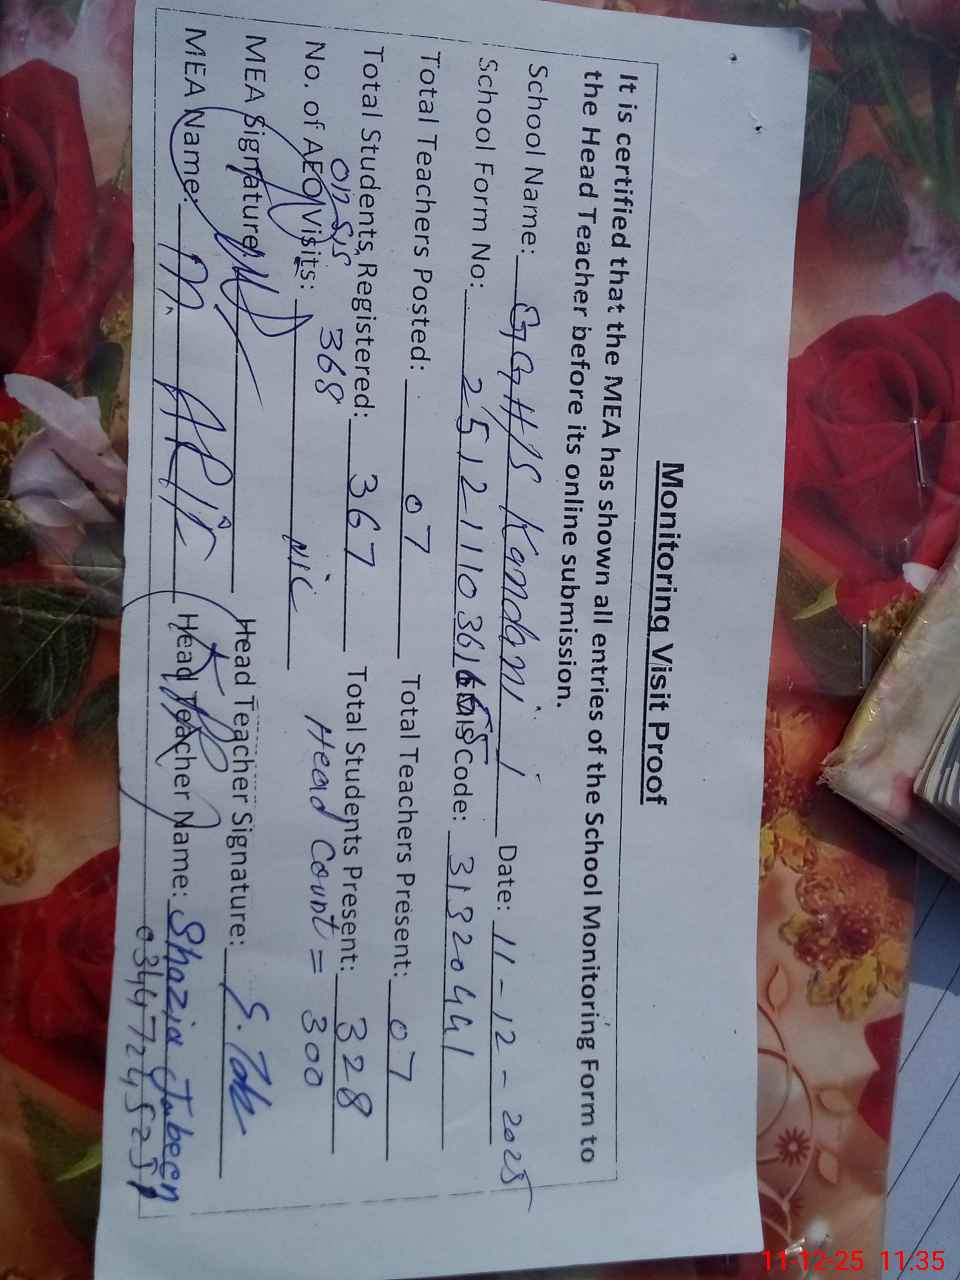 Monitoring Visit Proof
It is certified that the MEA has shown all entries of the School Monitoring Form to
the Head Teacher before its online submission.
School Name: GGHS Kandani Date: 11-12-2025
School Form No: 25121103616 EMIS Code: 31320441
Total Teachers Posted: 07 Total Teachers Present: 07
Total Students Registered: 367 Total Students Present: 328
on SIS 368 Head Count = 300
No. of AEO Visits: NIL
MEA Signature: Head Teacher Signature:
MEA Name: M. ARIF Head Teacher Name: Shazia Jabeen
11-12-25 11:35